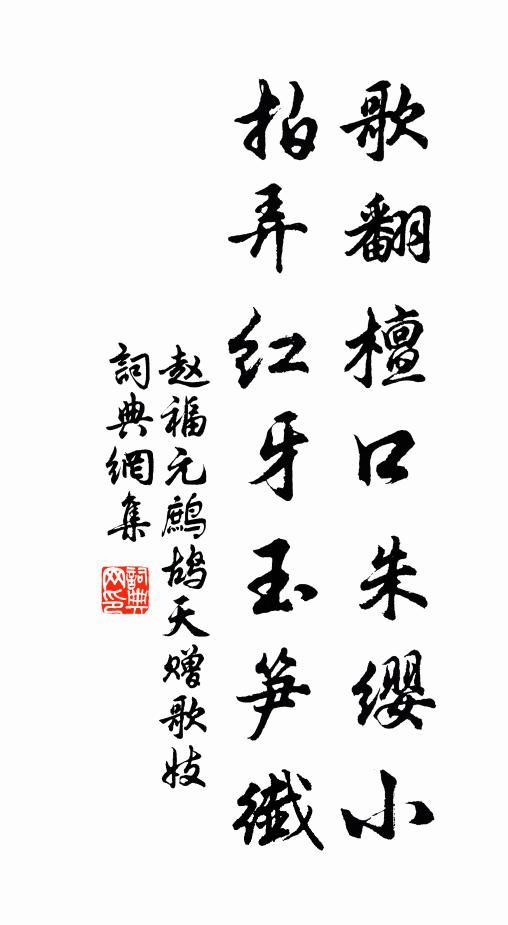 歌翻檀口朱缨小
拍弄红牙玉笋纖
赵福元鹧鸪天赠歌妓
詞典網集
詞典
网印